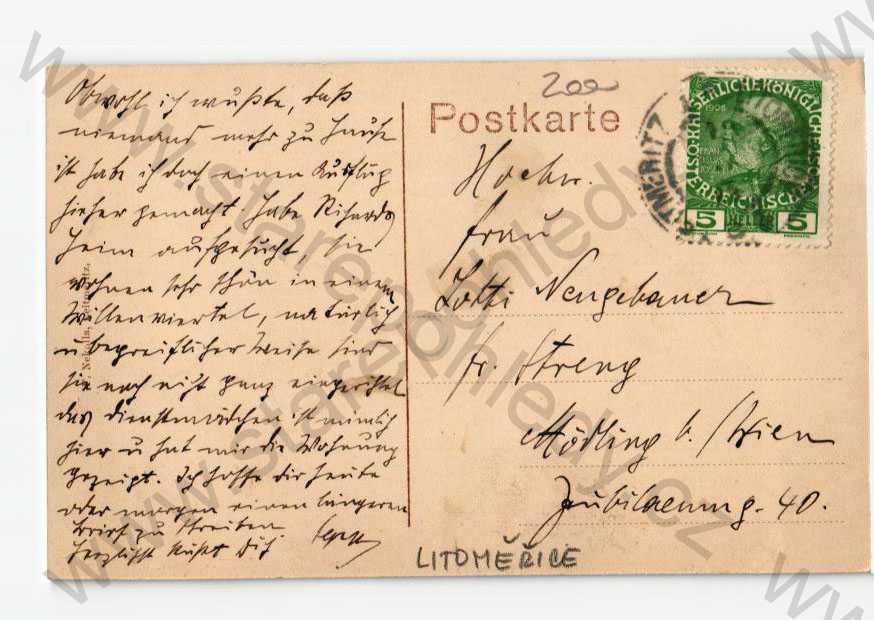 Obwohl ich wußte, daß
niemand mehr zu Hause
ist habe ich doch einen Ausflug
hieher gemacht habe Richards
Heim aufgesucht, sie
wohnen sehr schön in einem
Villenviertel, natürlich
u begreiflicher Weise sind
sie noch nicht ganz eingerichtet
das Dienstmädchen ist nämlich
hier u hat mir die Wohnung
gezeigt. Ich hoffe dir heute
oder morgen einen längeren
Brief zu schreiben
herzlichst küßt dich
200
Postkarte
Hochw.
Frau
Lotti Neugebauer
fr. Streng
Mödling b./Wien
Jubilaeumg. 40.
LITOMĚŘICE
1908
5 HELLER 5
www.starepohledy.cz
www.starepohledy.cz